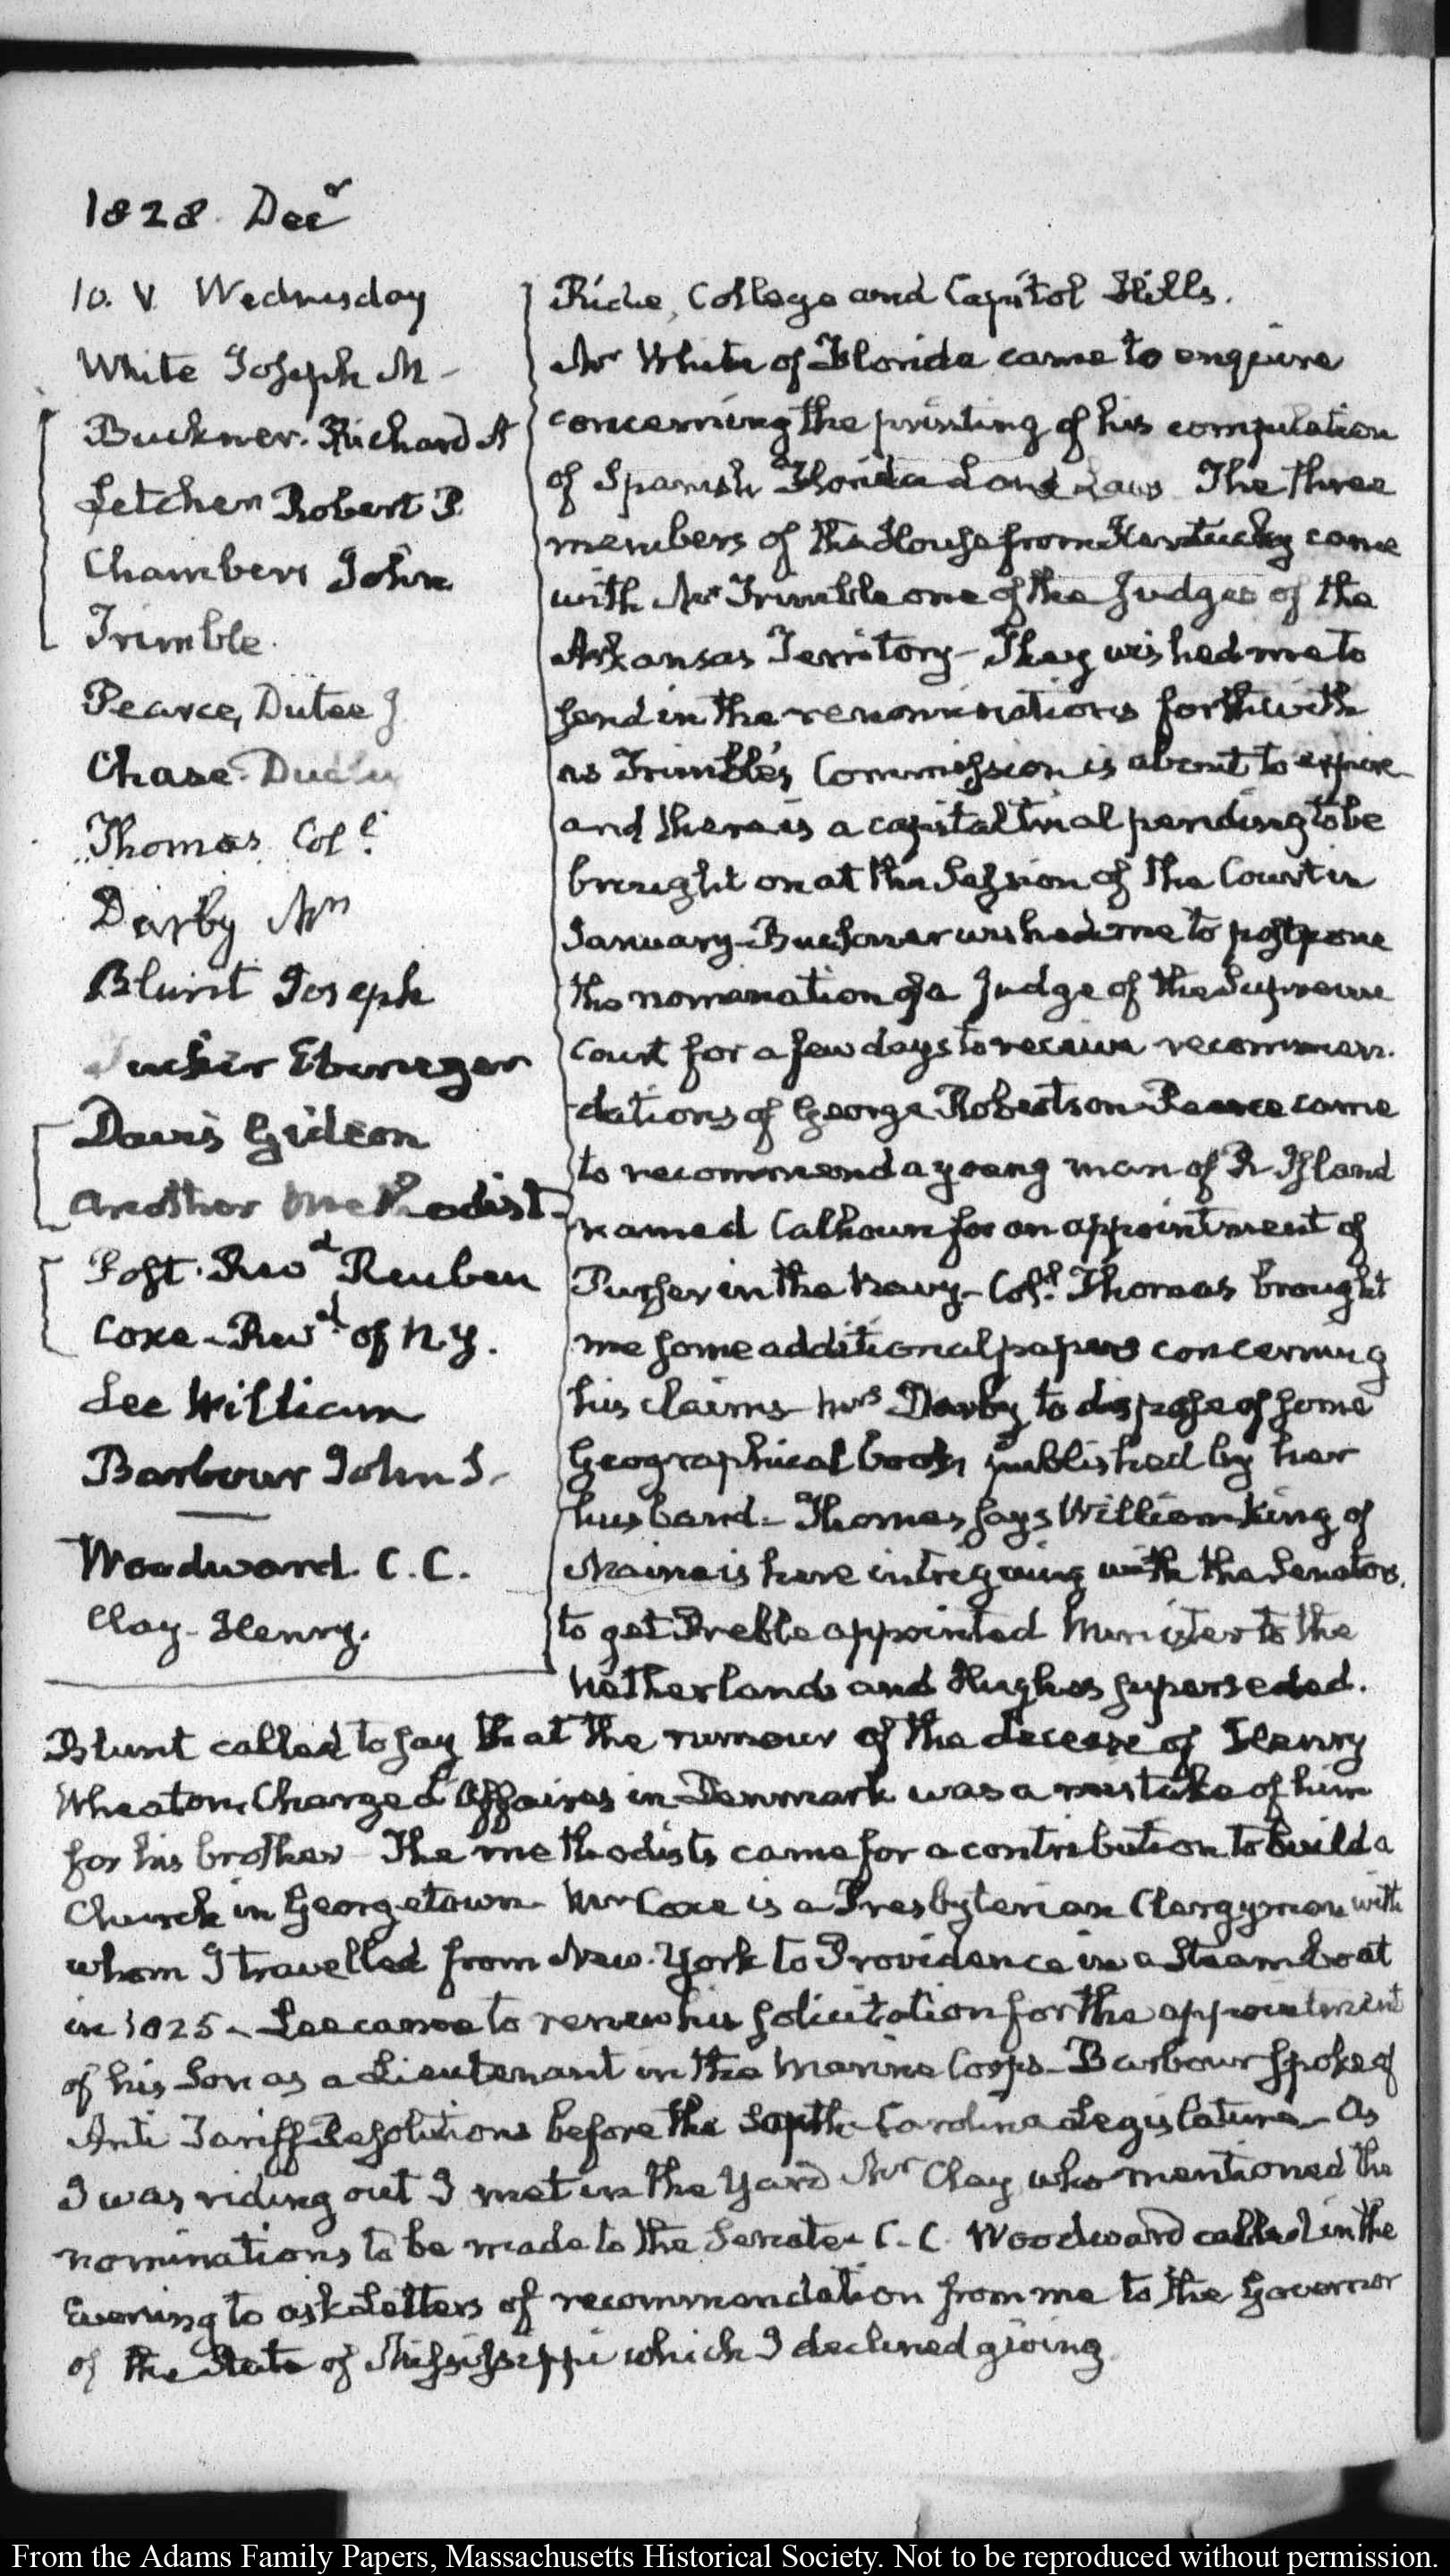 1828. Decr
10. V. Wednesday
White Joseph M -
Buckner. Richard A
Letcher Robert P.
Chambers John
Trimble.
Pearce, Dutee J
Chase. Dudley
Thomas. Coll.
Darby Mrs
Blunt Joseph
Tucker Ebenezer
Davis Gideon
another Methodist
Post. Revd Reuben
Coxe - Revd of N.Y.
Lee William
Barbour John S.
Woodward. C.C.
Clay - Henry.
Ride, College and Capitol Hills.
Mr White of Florida came to enquire
concerning the printing of his compilation
of Spanish Florida Land Laws. The three
members of the House from Kentucky came
with Mr Trimble one of the Judges of the
Arkansas Territory - They wished me to
send in the renominations forthwith
as Trimble's Commission is about to expire
and there is a capital trial pending to be
brought on at the Session of the Court in
January - Buckner wished me to postpone
the nomination of a Judge of the Supreme
Court for a few days to receive recommen-
dations of George Robertson - Pearce came
to recommend a young man of R. Island
named Calhoun for an appointment of
Purser in the Navy - Coll. Thomas brought
me some additional papers concerning
his claims - Mrs Darby to dispose of some
Geographical books published by her
husband - Thomas says William King of
Maine is here intriguing with the Senators,
to get Preble appointed Minister to the
Netherlands and Hughes superseded.
Blunt called to say that the rumour of the decease of Henry
Wheaton, Chargé d'Affaires in Denmark was a mistake of him
for his brother - The methodists came for a contribution to build a
Church in Georgetown - Mr Coxe is a Presbyterian Clergyman with
whom I travelled from New-York to Providence in a Steam boat
in 1825 - Lee came to renew his solicitation for the appointment
of his Son as a Lieutenant in the Marine Corps - Barbour spoke of
Anti Tariff Resolutions before the South-Carolina Legislature - As
I was riding out I met in the Yard Mr Clay who mentioned the
nominations to be made to the Senate - C. C. Woodward called in the
Evening to ask Letters of recommendation from me to the Governor
of the State of Mississippi which I declined giving
From the Adams Family Papers, Massachusetts Historical Society. Not to be reproduced without permission.